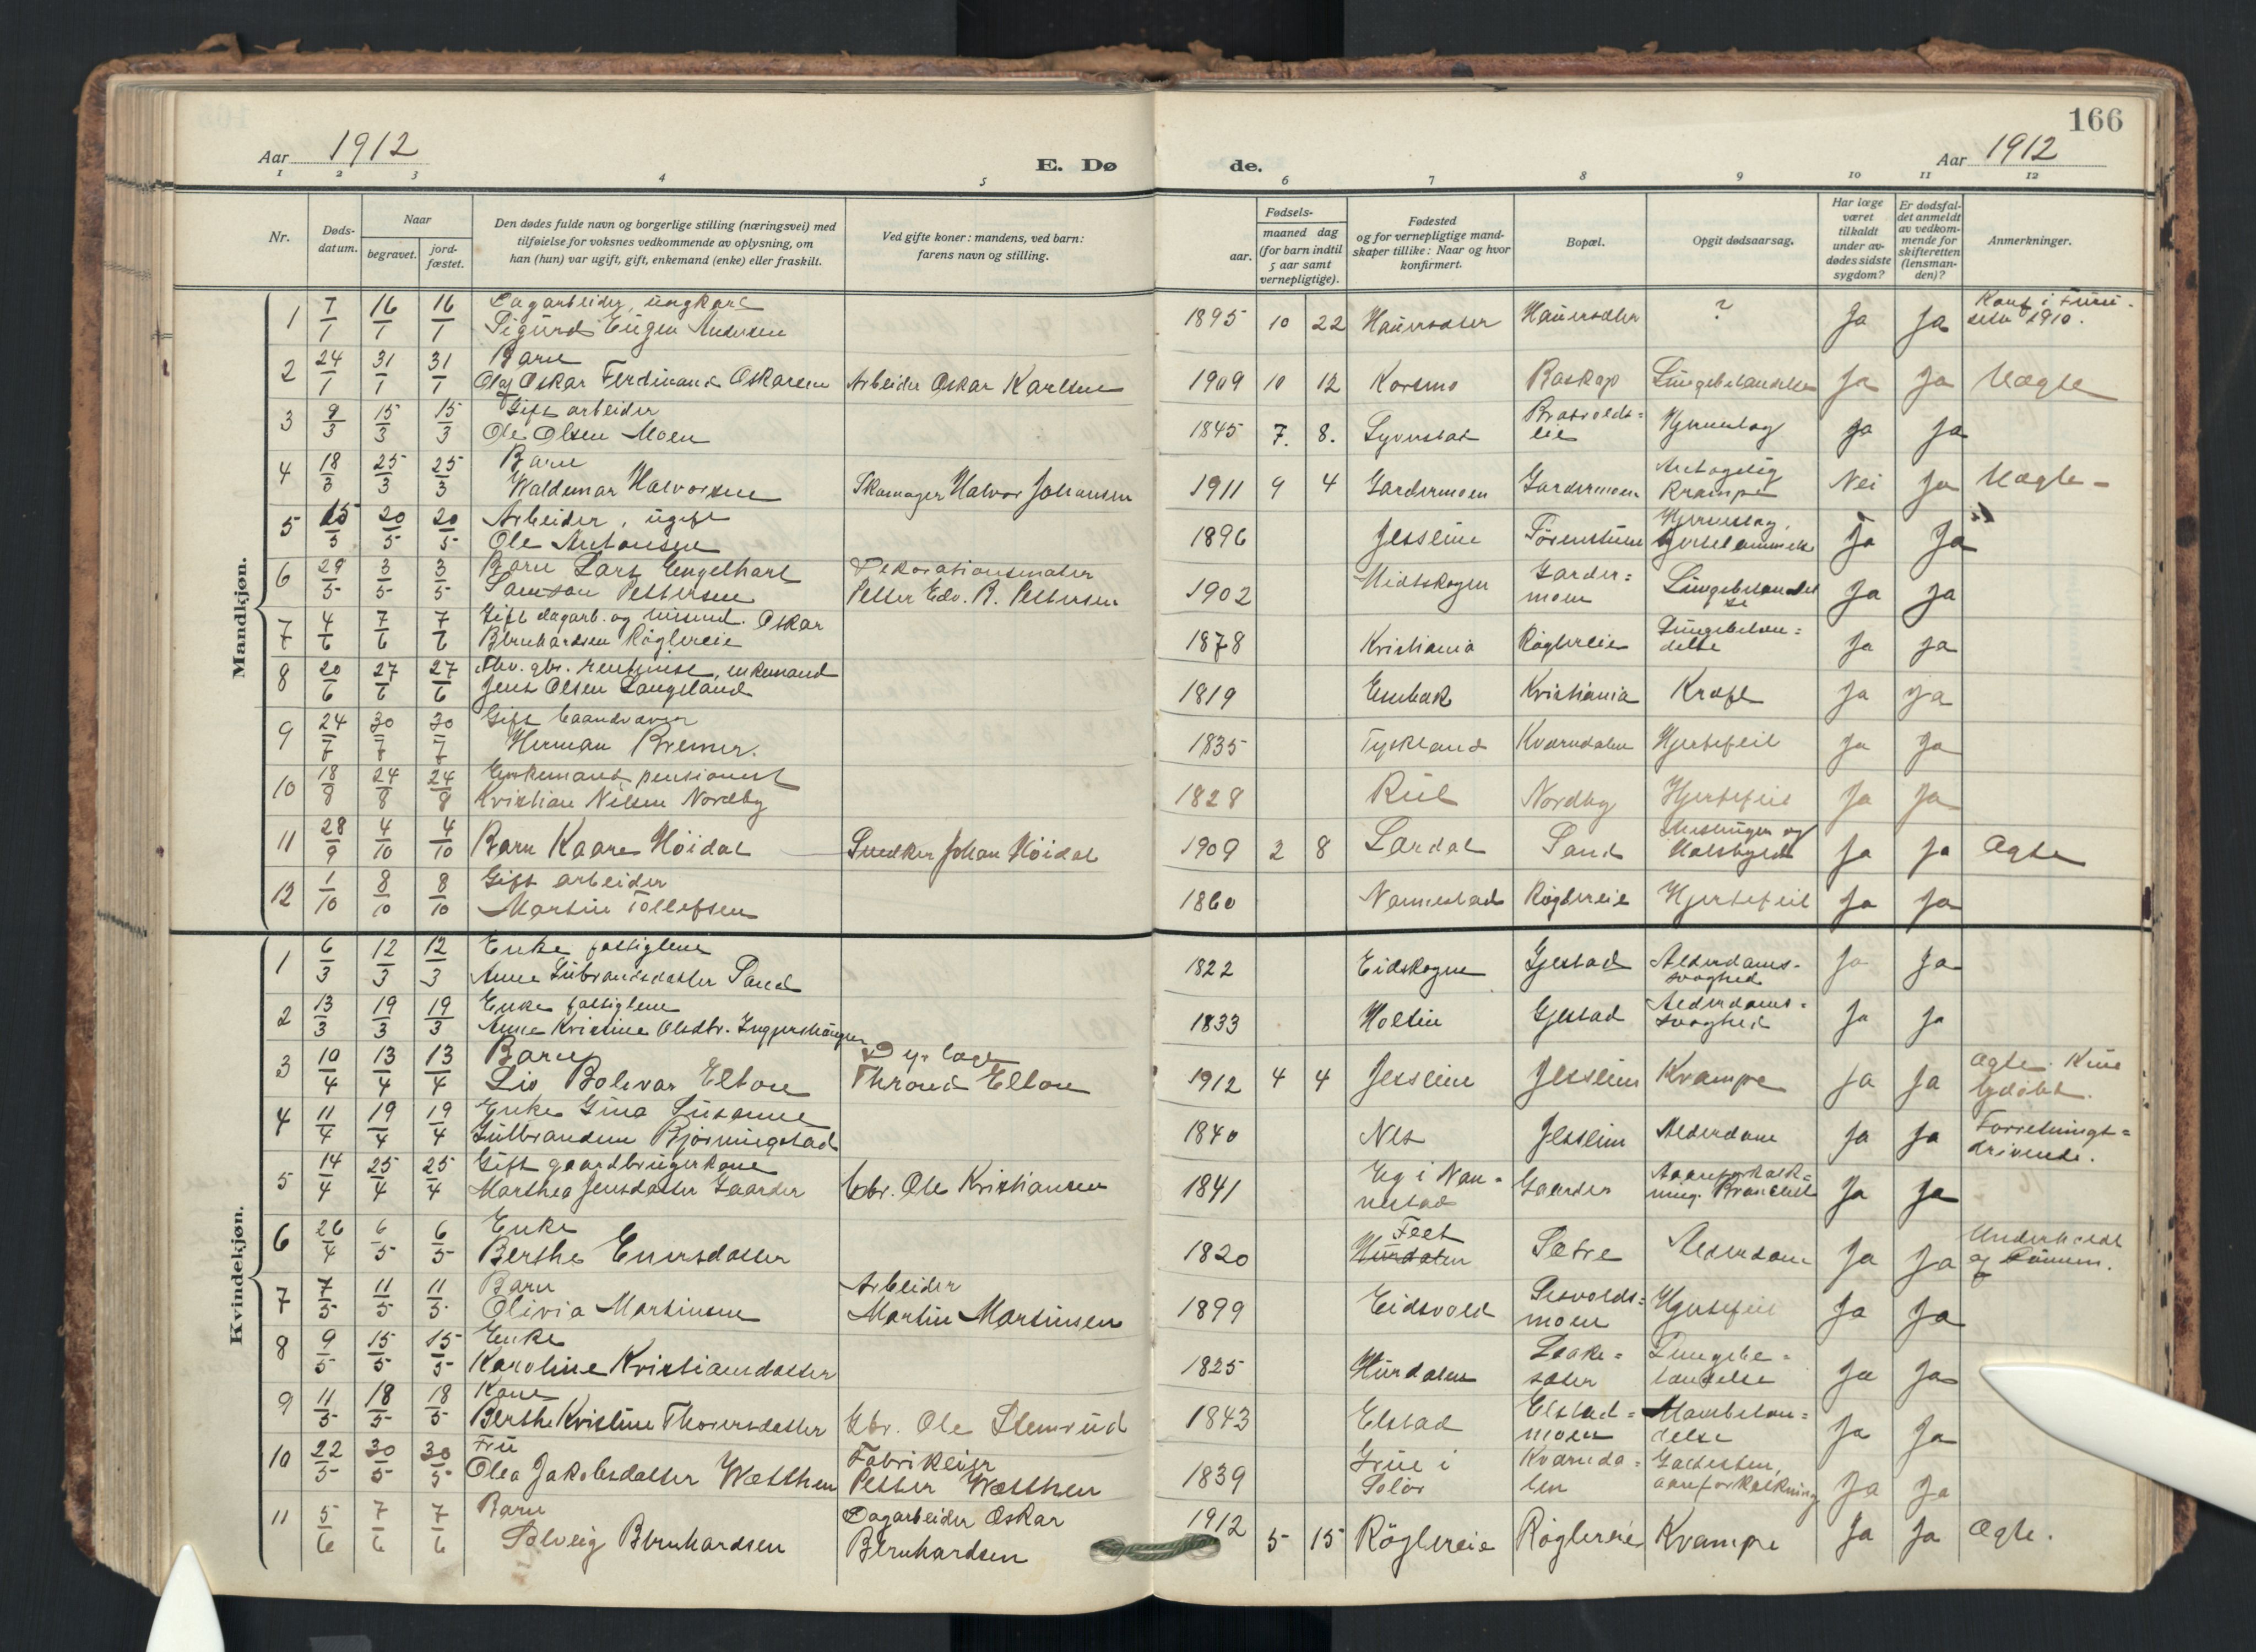 166
Aar 1912 E. Dø de. Aar 1912
1 2 3 4 5 6 7 8 9 10 11 12
Nr. Døds-datum. Naar begravet. jord-fæstet. Den dødes fulde navn og borgerlige stilling (næringsvei) med tilføielse for voksnes vedkommende av oplysning, om han (hun) var ugift, gift, enkemand (enke) eller fraskilt. Ved gifte koner: mandens, ved barn: farens navn og stilling. Fødsels- aar. maaned dag (for barn indtil 5 aar samt vernepligtige). Fødested og for vernepligtige mand-skaper tillike: Naar og hvor konfirmert. Bopæl. Opgit dødsaarsag. Har læge været tilkaldt under av-dødes sidste sygdom? Er dødsfal-det anmeldt av vedkom-mende for skifteretten (lensman-den)? Anmerkninger.
Mandkjøn.
1 7/1 16/1 16/1 Dagarbeider, ungkarl Sigurd Eugen Andersen 1895 10 22 Hauersæter Hauersæter ? Ja Ja Konf. i Furu- 1910.
2 24/1 31/1 31/1 Barn Olaf Oskar Ferdinand Oskarsen Arbeider Oskar Karlsen 1909 10 12 Korsmo Raskap Lungebetændelse Ja Ja Uægte
3 9/3 15/3 15/3 Gift arbeider Ole Olsen Moen 1845 7. 8. Lyverstad eie Hjerneslag Ja Ja
4 18/3 25/3 25/3 Barn Waldemar Halvorsen Skomager Halvor Johansen 1911 9 4 Gardermoen Gardermoen Antagelig Krampe Nei Ja Uægte -
5 15/5 20/5 20/5 Arbeider, ugift Ole Antonsen 1896 Jessheim Hjerneslag, Ja Ja
6 29/5 3/5 3/5 Barn Lars Engelhart Samson Pettersen Dekorationsmaler Petter Edv. R. Pettersen 1902 Midtskogen Garder=moen Lungebetændelse Ja Ja
7 4/6 7/6 7/6 Gift dagarb. og husmd. Oskar Bernhardsen Røglereie 1878 Kristiania Røglereie Lungebetæn=delse Ja Ja
8 20/6 27/6 27/6 Fhv. gbr. rentenist, enkemand Jens Olsen Langeland 1819 Enebak Kristiania Kræft Ja Ja
9 24/7 30/7 30/7 Gift baandvæver Herman Bremer. 1835 Tyskland Kværndalen Hjertefeil Ja Ja
10 18/8 24/8 24/8 Enkemand pensionist Kristian Nilsen Nordby 1828 Nordby Hjertefeil Ja Ja
11 28/9 4/10 4/10 Barn Kaare Höidal Snedker Johan Höidal 1909 2 8 Lardal Sand Meslinger og Halsbyld Ja Ja Ægte
12 1/10 8/10 8/10 Gift arbeider Martin Tollefsen 1860 Nannestad Røglereie Hjertefeil Ja Ja
Kvindekjøn.
1 6/3 12/3 12/3 Enke fattiglem Anne Gulbrandsdatter Sand 1822 Eidskogen Gjestad Alderdoms-svaghed Ja Ja
2 13/3 19/3 19/3 Enke fattiglem Anne Kristine Olsdtr. 1833 Holter Gjestad Alderdoms=svaghed Ja Ja
3 10/4 13/4 13/4 Barn Liv Bolivar Elton Dyrlæge Thrond Elton 1912 4 4 Jessheim Jessheim Krampe Ja Ja Ægte.
4 11/4 19/4 19/4 Enke Gina Susanne Gulbrandsen Bjørningstad 1840 Nes Jessheim Alderdom Ja Ja Forretnings=drivende.
5 14/4 25/4 25/4 Gift gaardbrugerkone Marthea Jensdatter Gaarder Gbr. Ole Kristiansen 1841 Eg i Nan=nestad Gaarder Aareforkalk=ning. Ja Ja
6 26/4 6/5 6/5 Enke Berthe Enersdatter 1820 Feet Hurdalen Sætre Alderdom Ja Ja Underholdt af Sønnen.
7 7/5 11/5 11/5 Barn Olivia Martinsen Arbeider Martin Martinsen 1899 Eidsvold moen Hjertefeil Ja Ja
8 9/5 15/5 15/5 Enke Karoline Kristiansdatter 1825 Hurdalen Laake=sæter Lungebe=tændelse Ja Ja
9 11/5 18/5 18/5 Kone Berthe Kristine Thoresdatter Gbr. Ole Stenrud 1843 Elstad Elstad=moen delse Ja Ja
10 22/5 30/5 30/5 Fru Olea Jakobsdatter Wetthen Fabrikeier Petter Wetthen 1839 Grue i Solør Kværnda=len Galdesten, aareforkalkning Ja Ja
11 5/6 7/6 7/6 Barn Solveig Bernhardsen Dagarbeider Oskar Bernhardsen 1912 5 15 Røglereie Røglereie Krampe Ja Ja Ægte.